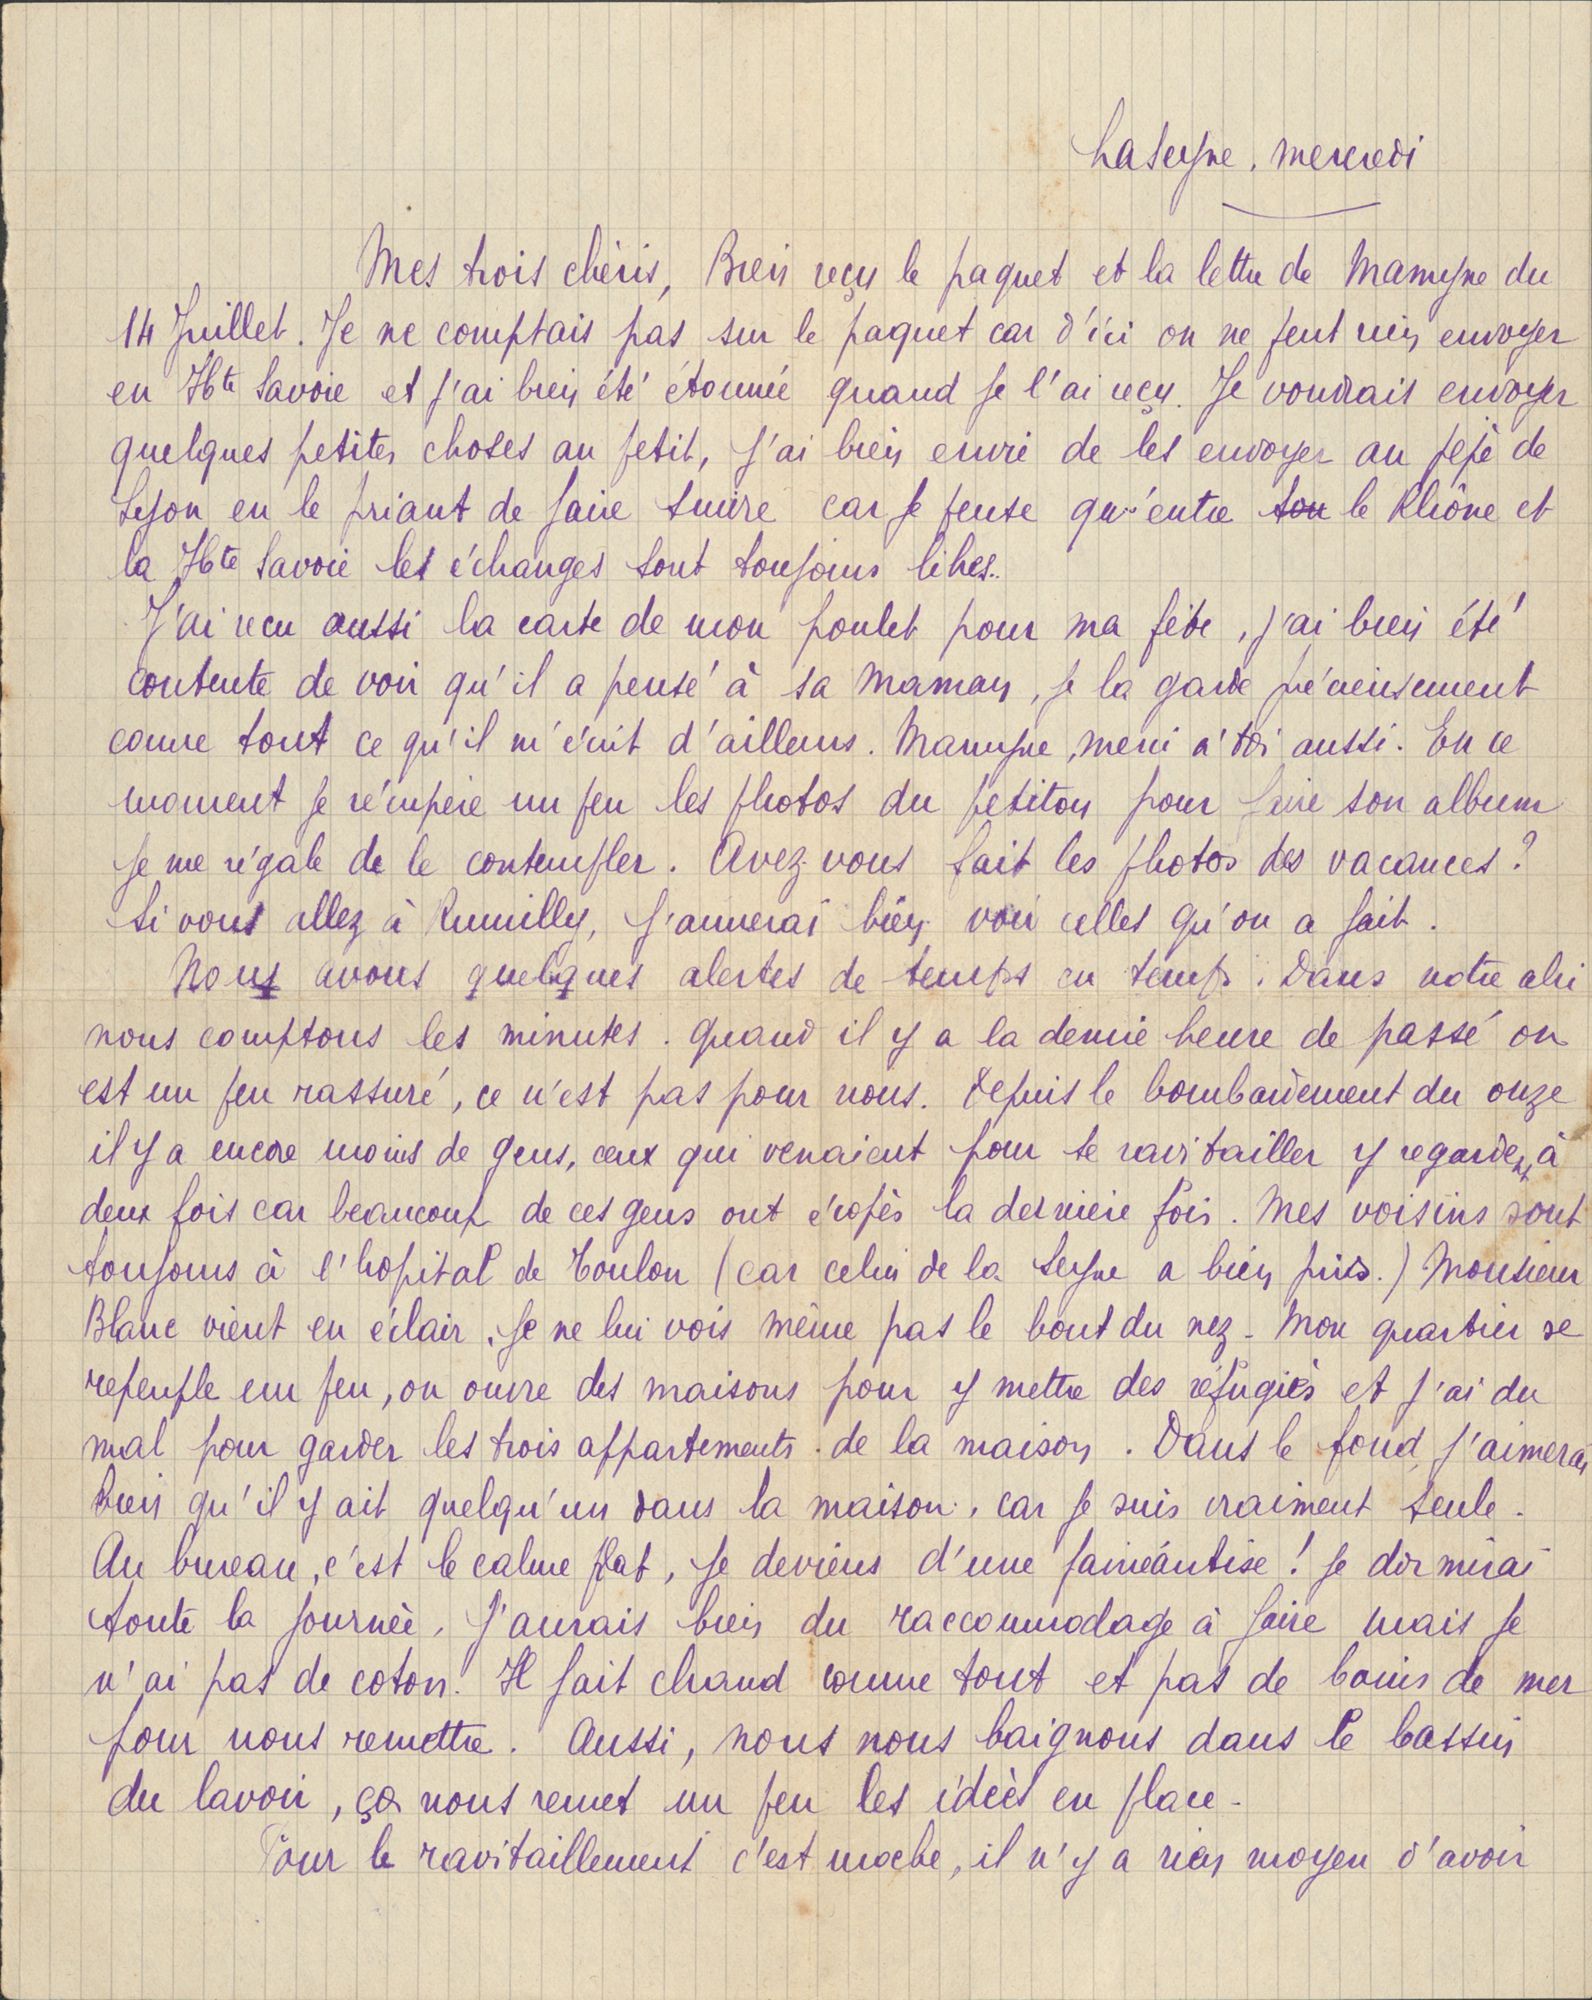 La Seyne, mercredi
Mes trois chéris, Bien reçu le paquet et la lettre de Mamyne du
14 Juillet. Je ne comptais pas sur le paquet car d'ici on ne peut rien envoyer
en Hte Savoie et j'ai bien été étonnée quand je l'ai reçu. Je voudrais envoyer
quelques petites choses au petit, j'ai bien envie de les envoyer au pépé de
Lyon en le priant de faire suivre car je pense qu'entre son le Rhône et
la Hte Savoie les échanges sont toujours libres..
J'ai recu aussi la carte de mon poulet pour ma fête, j'ai bien été
contente de voir qu'il a pensé à sa maman, je la garde précieusement
comme tout ce qu'il m'écrit d'ailleurs. Mamyne, merci à toi aussi. En ce
moment je récupère un peu les photos du petiton pour faire son album
je me régale de le contempler. Avez-vous fait les photos des vacances?
Si vous allez à Rumilly, j'aimerai bien voir celles qu'on a fait.
Nous avons quelques alertes de temps en temps. Dans notre abri
nous comptons les minutes. quand il y a la demie heure de passé on
est un peu rassuré, ce n'est pas pour nous. Depuis le bombardement du onze
il y a encore moins de gens, ceux qui venaient pour se ravitailler y regardent à
deux fois car beaucoup de ces gens ont écopés la dernière fois. Mes voisins sont
toujours à l'hopital de Toulon (car celui de la Seyne a bien pris.) Monsieur
Blanc vient en éclair, je ne lui vois même pas le bout du nez - Mon quartier se
repeuple un peu, on ouvre des maisons pour y mettre des réfugiés et j'ai du
mal pour garder les trois appartements de la maison. Dans le fond, j'aimerai
bien qu'il y ait quelqu'un dans la maison, car je suis vraiment seule.
Au bureau, c'est le calme plat, je deviens d'une fainéantise! je dormirai
toute la journée, j'aurais bien du raccommodage à faire mais je
n'ai pas de coton. Il fait chaud comme tout et pas de bains de mer
pour nous remettre. Aussi, nous nous baignons dans le bassin
du lavoir, ça nous remet un peu les idées en place -
Pour le ravitaillement c'est moche, il n'y a rien moyen d'avoir